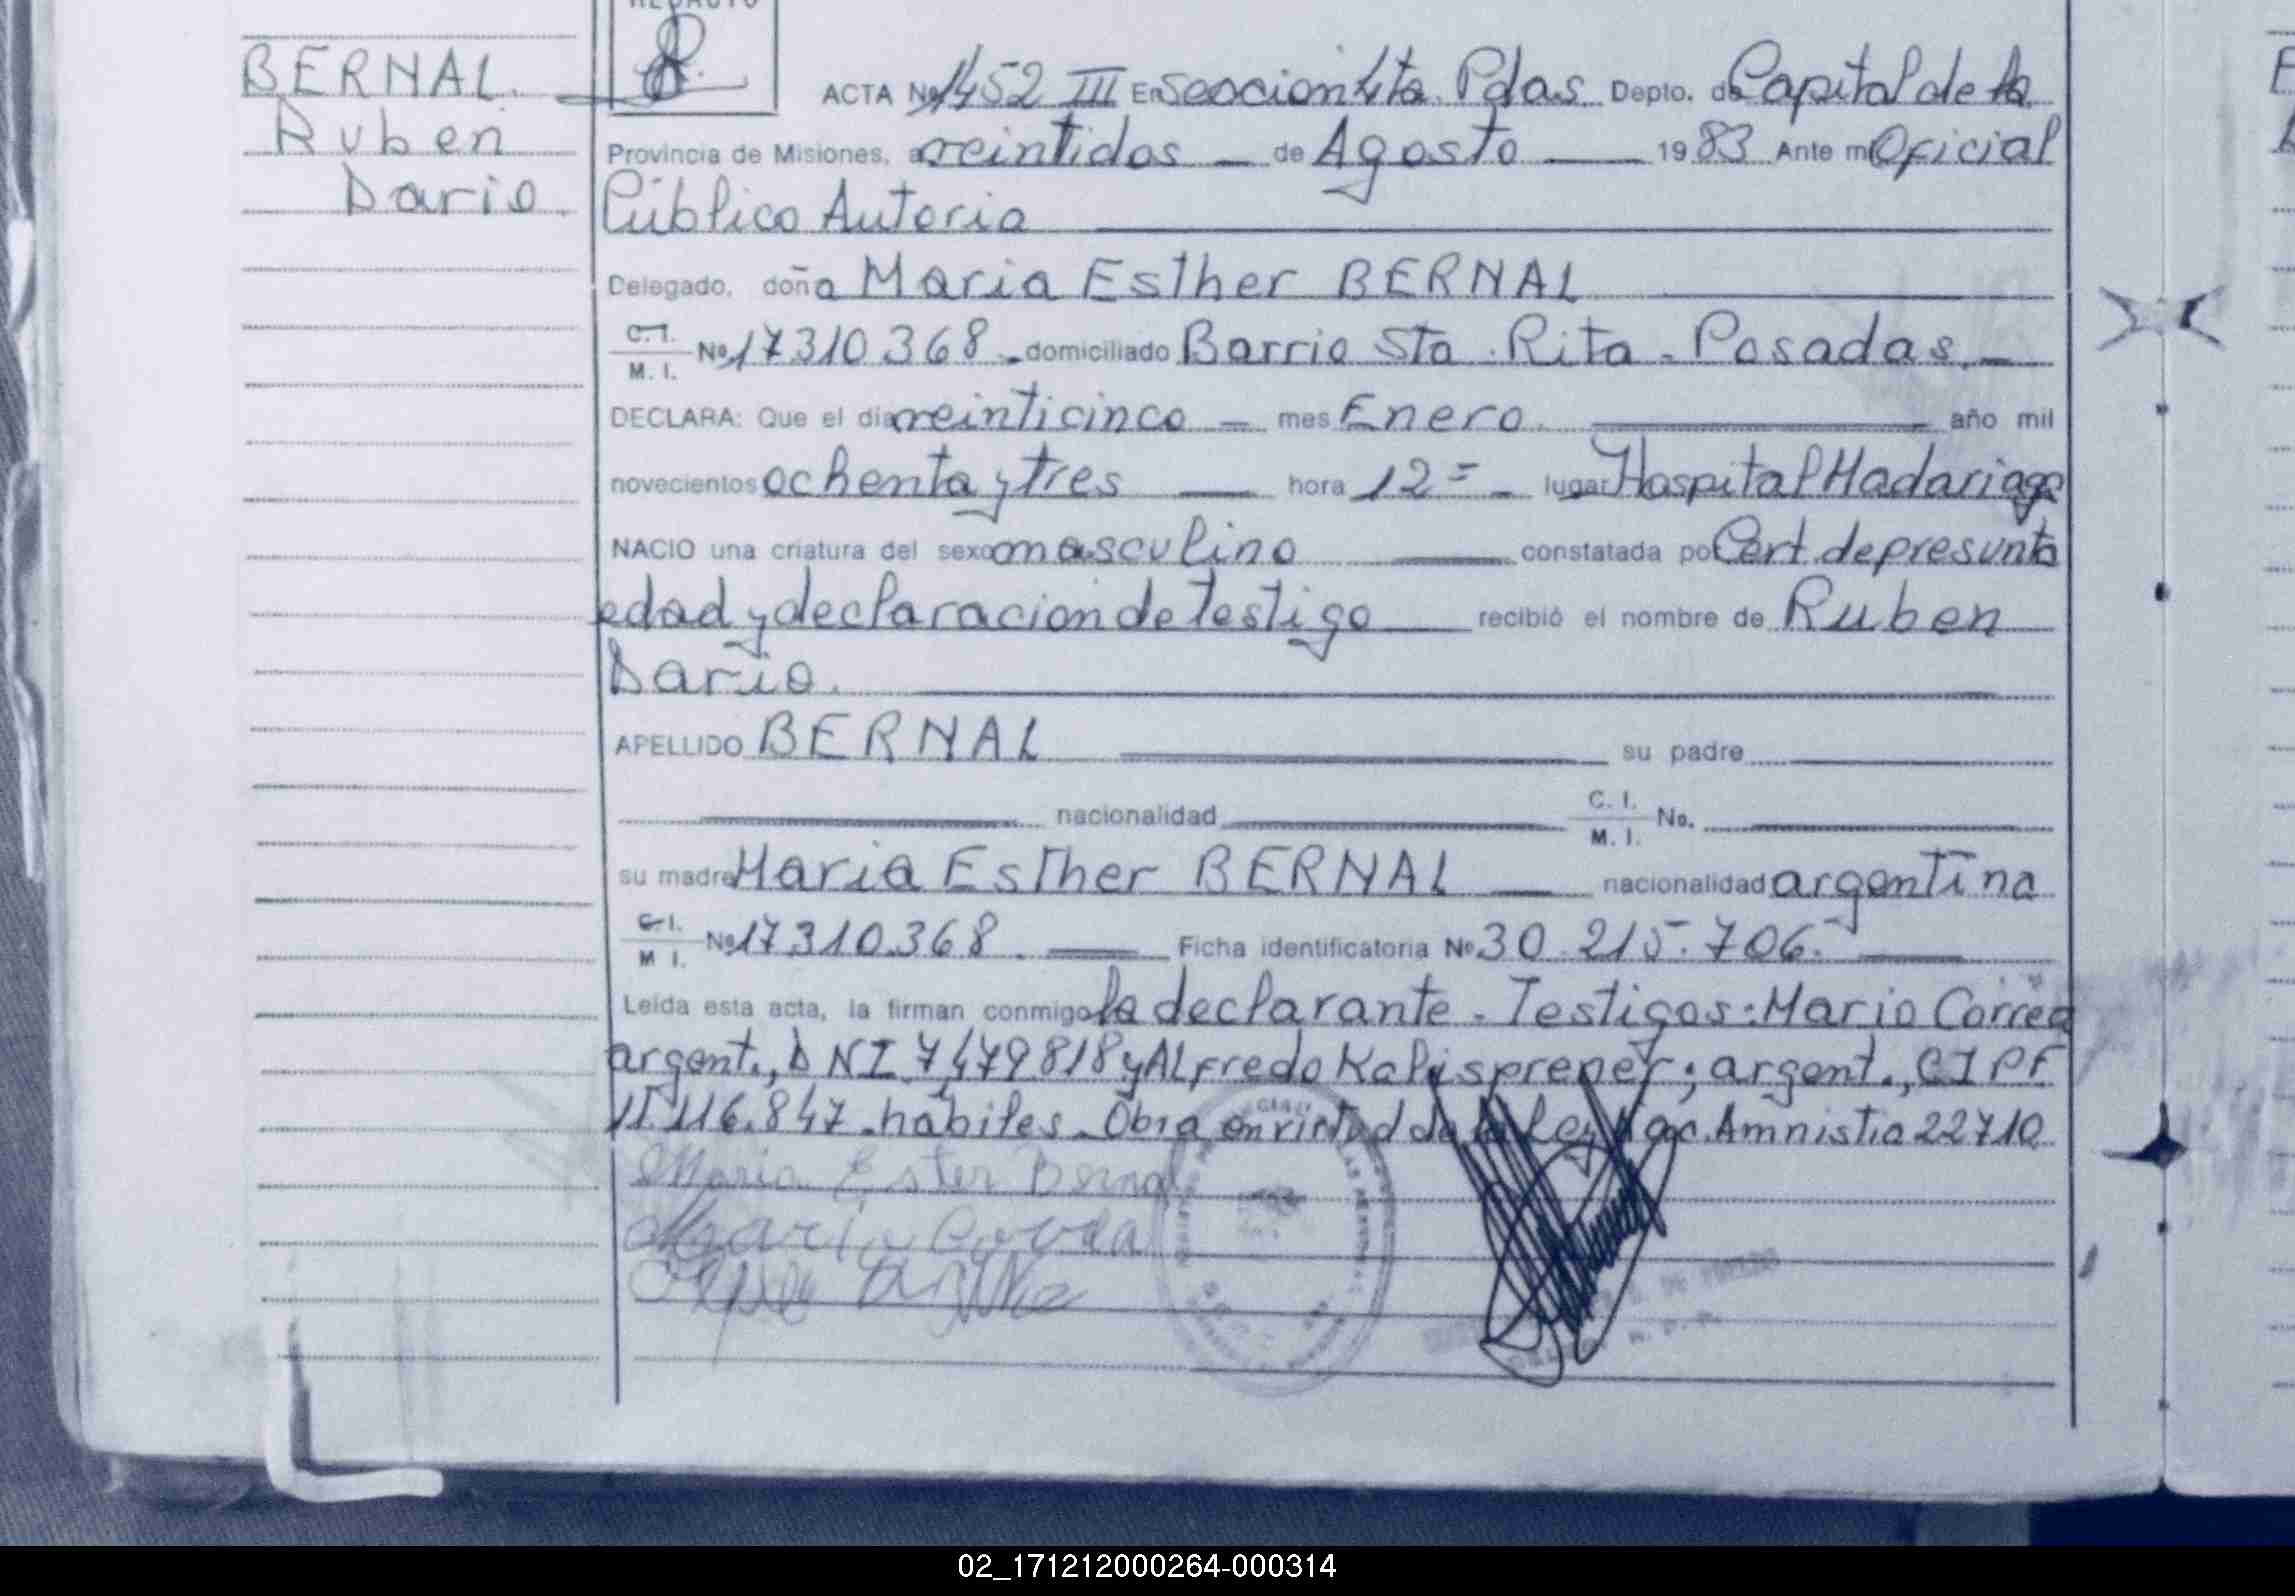 BERNAL.
Ruben
Dario.
ACTA Nº 1452 III En Seccion 4ta. Pdas. Depto. de Capital de la
Provincia de Misiones, a veintidos — de Agosto — 1983 Ante mi Oficial
Público Autoria
Delegado, doña Maria Esther BERNAL
C.I. M. I. Nº 17310.368 - domiciliado Barrio Sta. Rita - Posadas. -
DECLARA: Que el dia veinticinco — mes Enero. — año mil
novecientos ochenta y tres — hora 12 = - lugar Hospital Madariaga
NACIO una criatura del sexo masculino — constatada por Cert. de presunta
edad y declaracion de testigo — recibió el nombre de Ruben
Dario.
APELLIDO BERNAL — su padre
— nacionalidad — C. I. M. I. No. —
su madre Maria Esther BERNAL — nacionalidad argentina
C. I. M I. Nº 17310.368. — Ficha identificatoria Nº 30.215.706. —
Leida esta acta, la firman conmigo la declarante. Testigos: Mario Correa
argent., DNI 7479818 y Alfredo Kalisprener; argent., CI PF
11.116.847. hábiles. Obra en virtud de la Ley Nac. Amnistia 22710
Maria Ester Bernal
Mario Correa
02_171212000264-000314